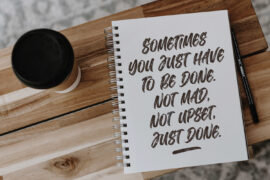 SOMETIMES
YOU JUST HAVE
TO BE DONE.
NOT MAD,
NOT UPSET,
JUST DONE.